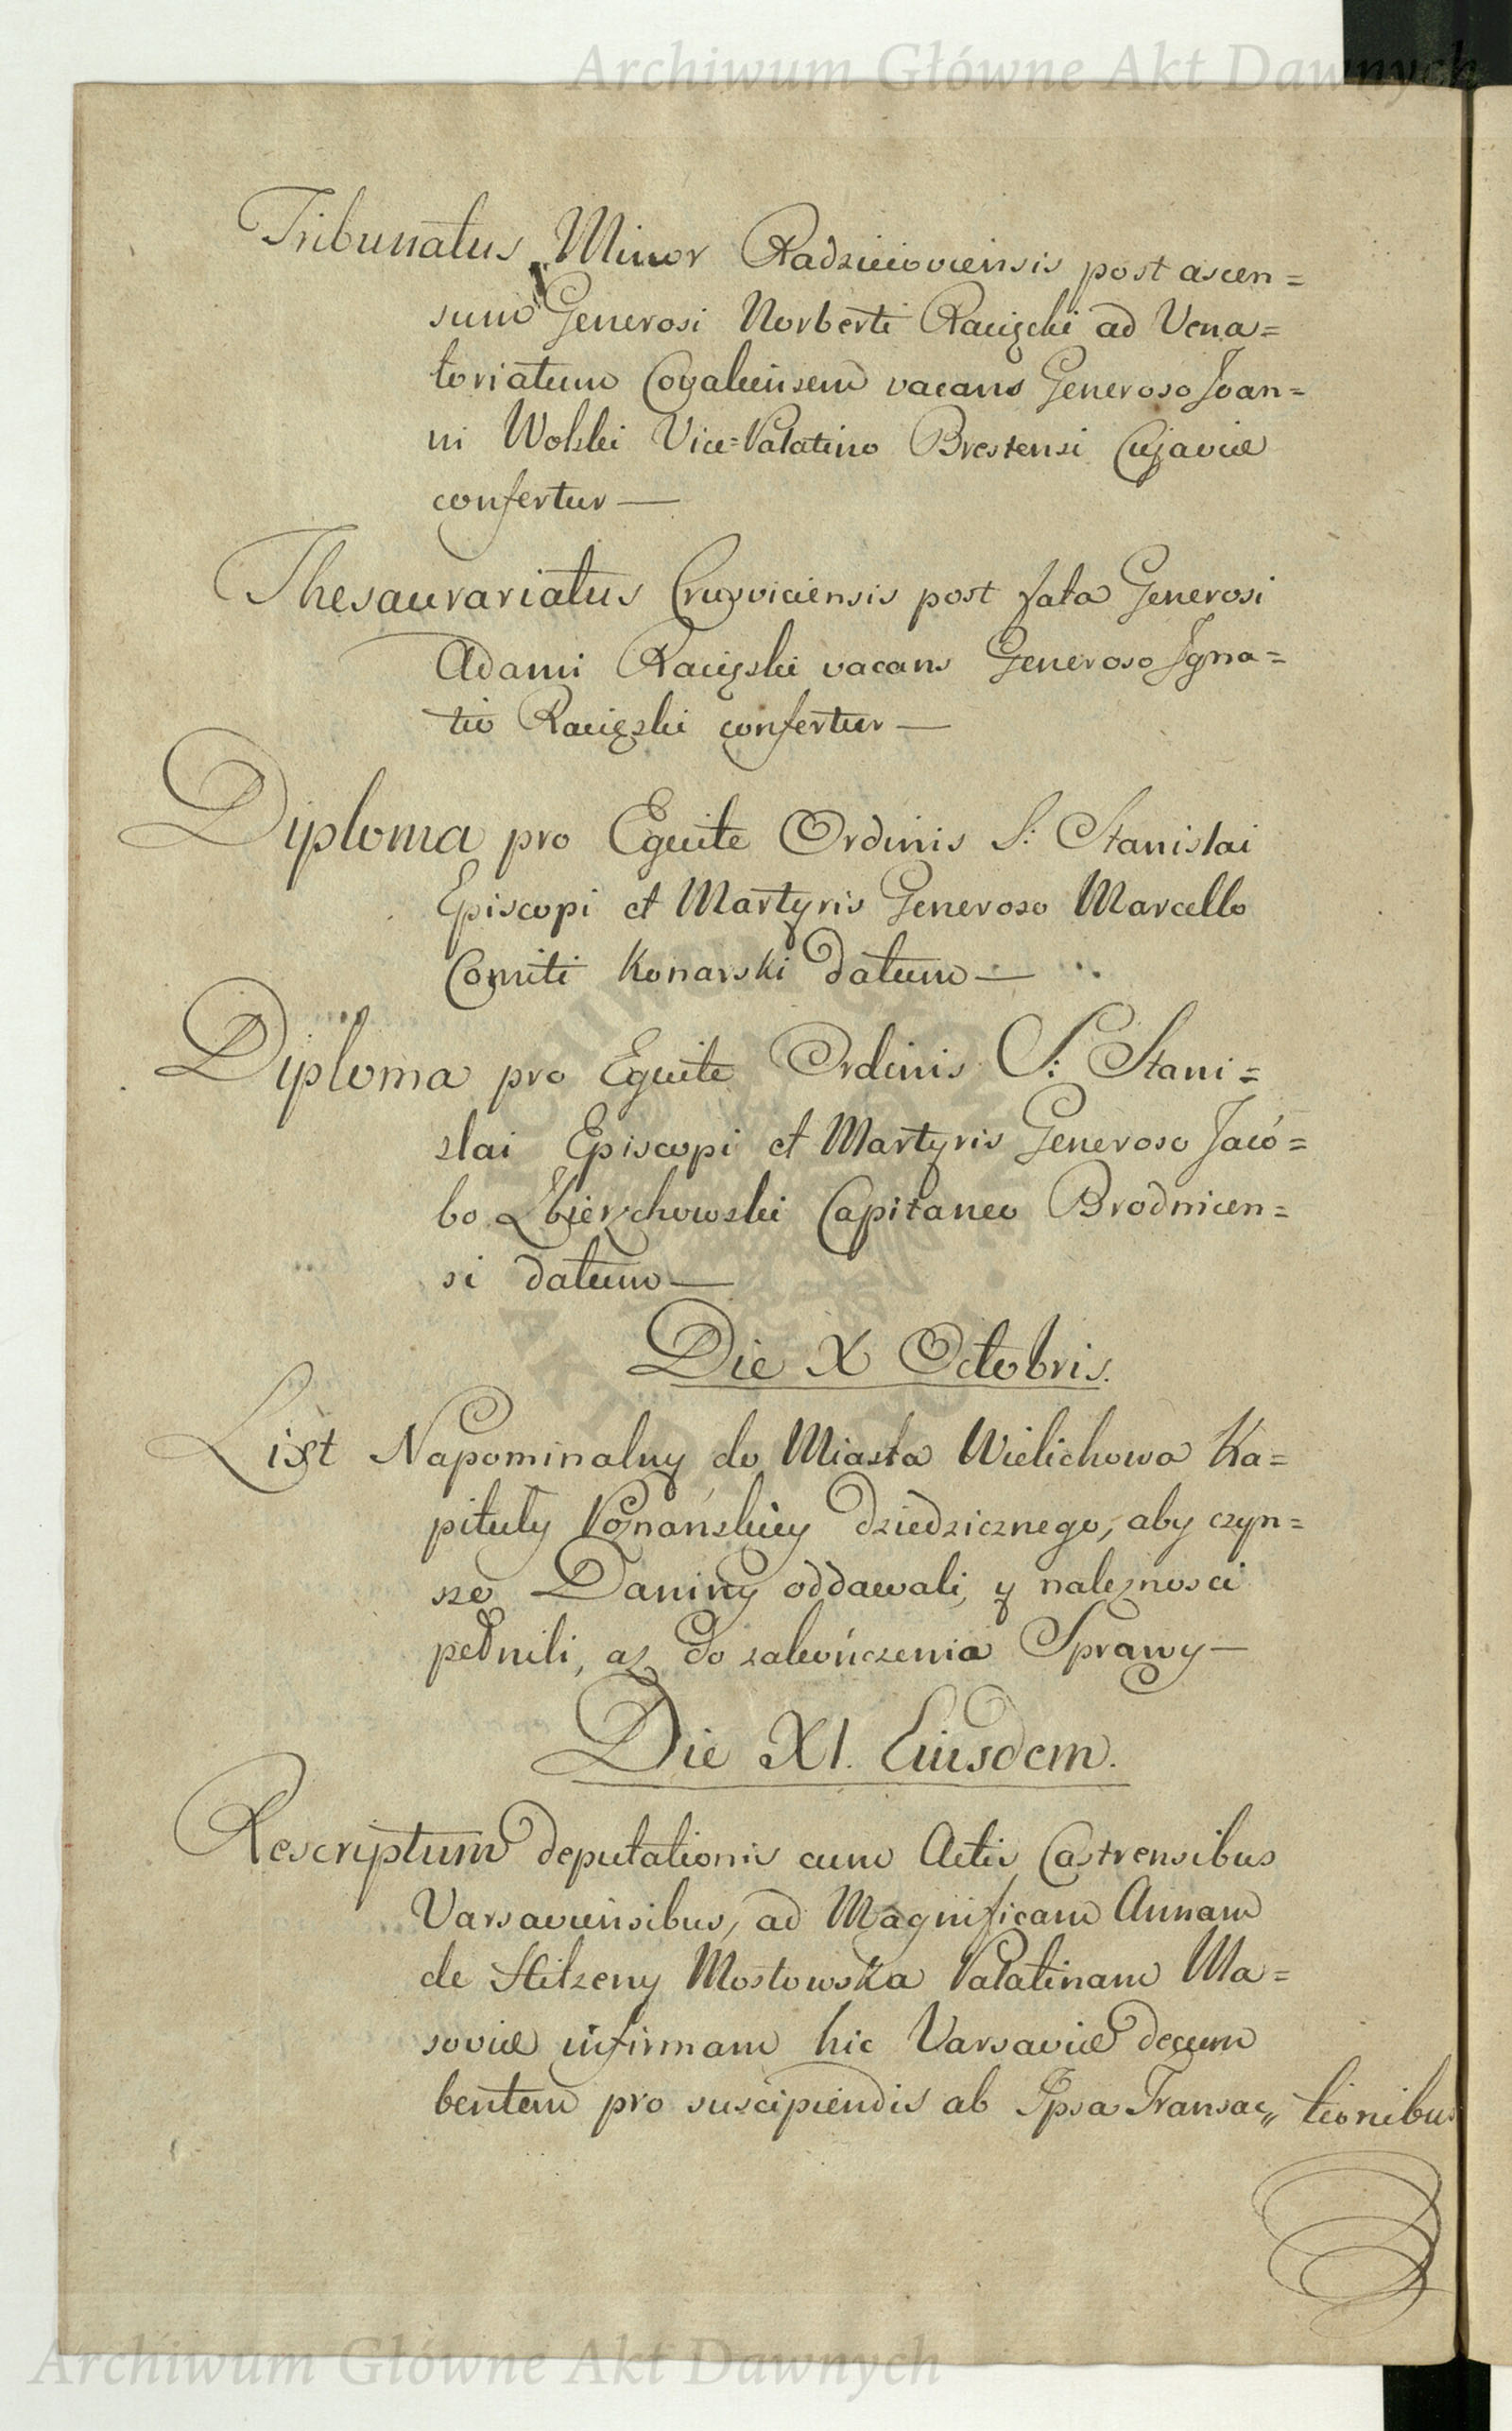 Archiwum Główne Akt Dawnych
Tribunatus Minor Radziejoviensis post ascen=
sum Generosi Norberti Racięcki ad Vena=
toriatum Covaliensem vacans Generoso Joan=
ni Wolski Vice=Palatino Brestensi Cujaviæ
confertur —
Thesaurariatus Crusviciensis post fata Generosi
Adami Racięski vacans Generoso Igna=
tio Racięski confertur —
Diploma pro Equite Ordinis S: Stanislai
Episcopi et Martyris Generoso Marcello
Comiti Konarski datum —
Diploma pro Equite Ordinis S: Stani=
slai Episcopi et Martyris Generoso Jacó=
bo Zbierzchowski Capitaneo Brodnicen=
si datum —
Die X Octobris.
List Napominalny do Miasta Wielichowa Ka=
pituły Poznańskiey dziedzicznego, aby czyn=
sze Daniny oddawali, y naleznosci
pełnili, az do zakończenia Sprawy —
Die XI. Eiusdem.
Rescriptum deputationis cum Actis Castrensibus
Varsaviensibus, ad Magnificam Annam
de Hilzeny Mostowska Palatinam Ma=
soviæ infirmam hic Varsaviæ decum
bentem pro suscipiendis ab Ipsa Transac„ tionibus
Archiwum Główne Akt Dawnych